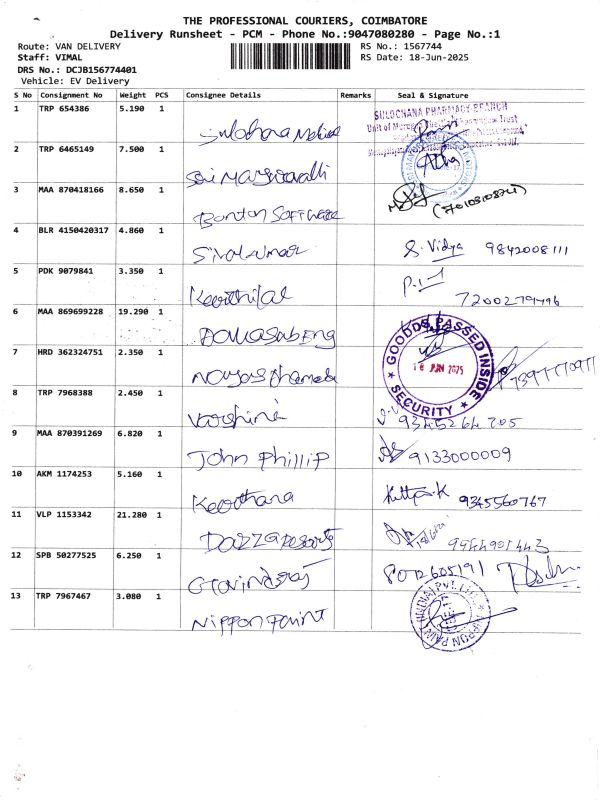 THE PROFESSIONAL COURIERS, COIMBATORE
Delivery Runsheet - PCM - Phone No.:9047080280 - Page No.:1
Route: VAN DELIVERY RS No.: 1567744
Staff: VIMAL RS Date: 18-Jun-2025
DRS No.: DCJB156774401
Vehicle: EV Delivery
S No Consignment No Weight PCS Consignee Details Remarks Seal & Signature
1 TRP 654386 5.190 1
SULOCHANA PHARMACY BRANCH
Sulochana
2 TRP 6465149 7.500 1
Sai
3 MAA 870418166 8.650 1
Bonton Software
4 BLR 4150420317 4.860 1
Sivakumar S. Vidya 9842008111
5 PDK 9079841 3.350 1
Keerthilal 7200279496
6 MAA 869699228 19.290 1
GOODS PASSED INSIDE
18 JUN 2025
SECURITY
7 HRD 362324751 2.350 1
8 TRP 7968388 2.450 1
Varshini 9345264205
9 MAA 870391269 6.820 1
John Phillip 9133000009
10 AKM 1174253 5.160 1
Keerthana 9345560767
11 VLP 1153342 21.280 1
9944901443
12 SPB 50277525 6.250 1
Govindaraj 8012605191
13 TRP 7967467 3.080 1
Nippon Paint